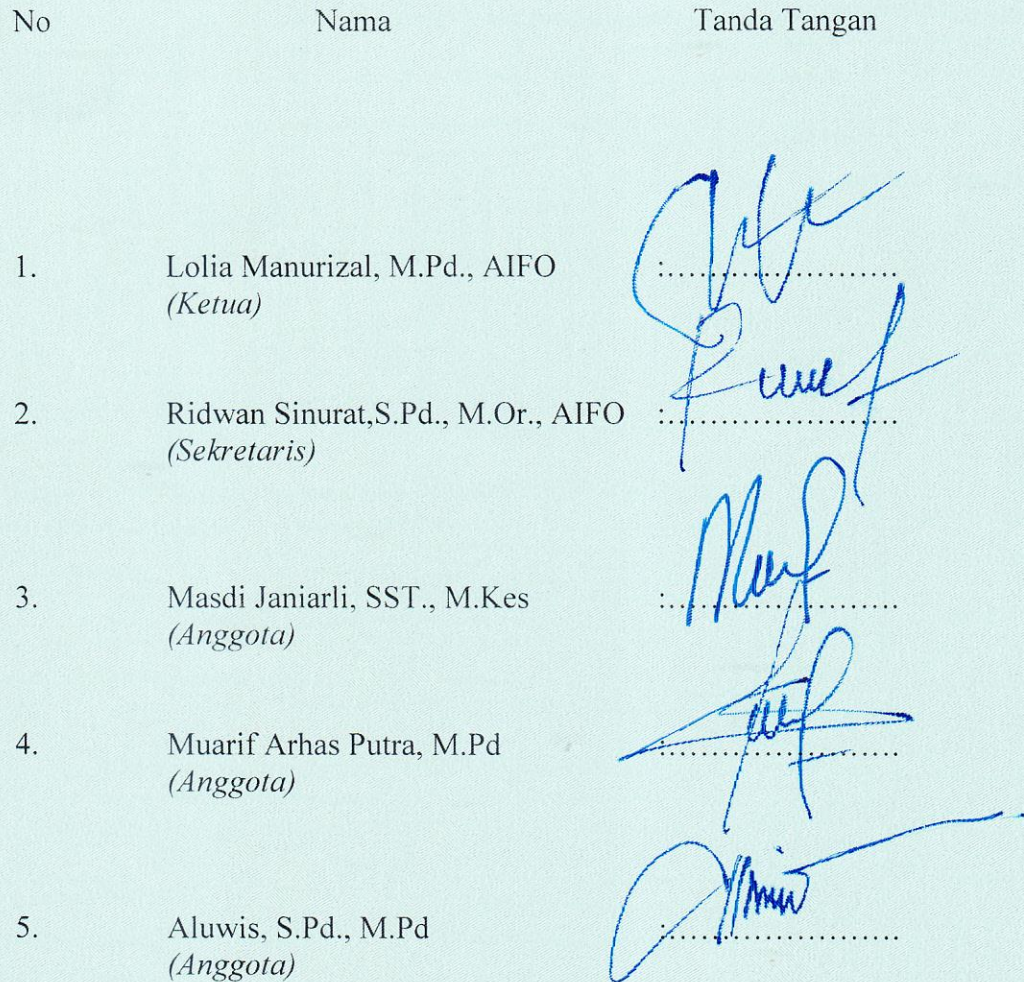 No Nama Tanda Tangan
1. Lolia Manurizal, M.Pd., AIFO :......................
(Ketua)
2. Ridwan Sinurat,S.Pd., M.Or., AIFO :......................
(Sekretaris)
3. Masdi Janiarli, SST., M.Kes :......................
(Anggota)
4. Muarif Arhas Putra, M.Pd :......................
(Anggota)
5. Aluwis, S.Pd., M.Pd :......................
(Anggota)